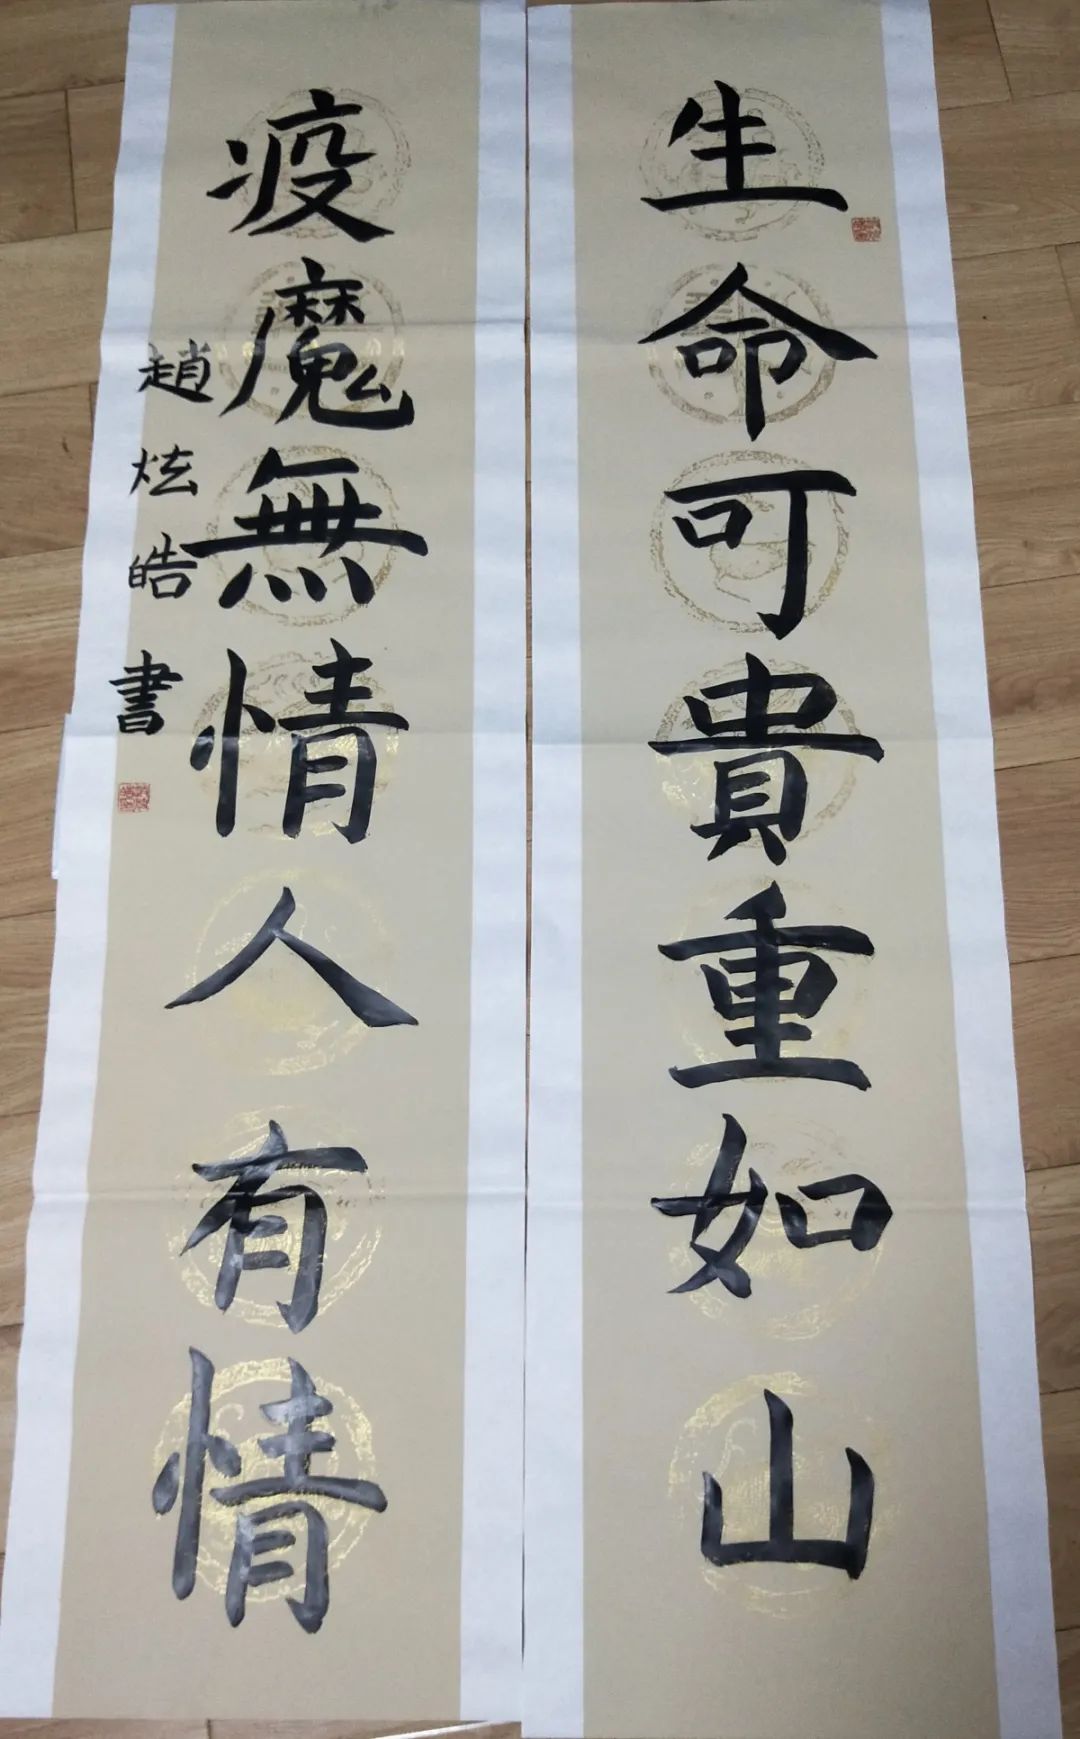 生命可貴重如山
疫魔無情人有情
趙炫皓書